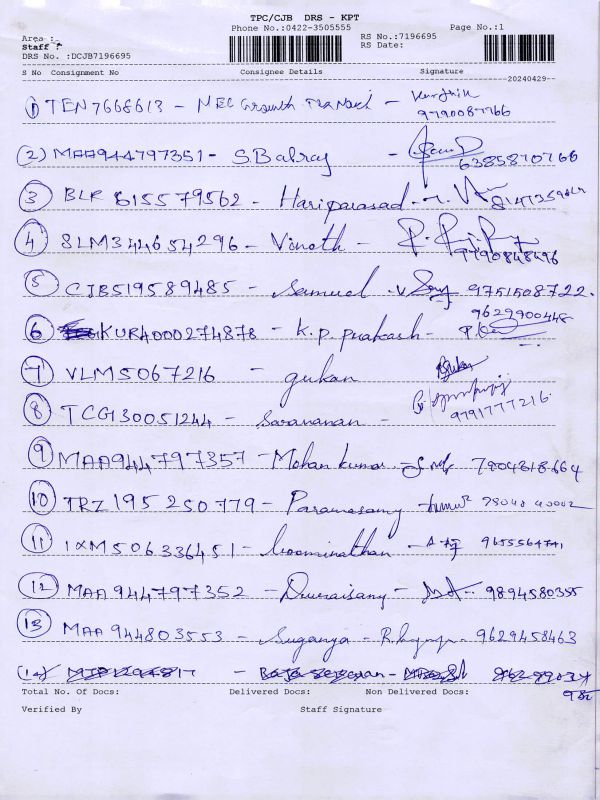 TPC/CJB DRS - KPT
Phone No.:0422-3505555 Page No.:1
Area :
Staff :
RS No.:7196695
RS Date:
DRS No. :DCJB7196695
S No Consignment No Consignee Details Signature
20240429
1) TEN7668613 - MEC Growth - Karthik
9790087766
(2) MAA944797351 - S. Balraj - 6385870766
3 BLR 615579562 - Hariprasad -
4 SLM344654296 - Vinoth - 9790848496
5 CJB519589485 - Samuel - 9751508722.
9629900448
6 KUR4000274878 - K.P. Prakash -
7 VLM5067216 - gukan
8 TCG130051244 - Saravanan - 9791777216
9 MAA944797357 - Mohan kumar - 7904818664
10 TRZ195250779 - Paramasamy -
11 IXM506336451 - boominathan - 9655564741
12 MAA944797352 - Duraisamy - 9894580355
13 MAA944803553 - Suganya - 9629458463
(14)
Total No. Of Docs: Delivered Docs: Non Delivered Docs:
Verified By Staff Signature